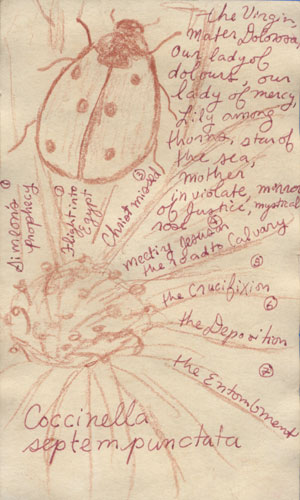 the Virgin,
Mater Dolorosa,
Our lady of
dolours, our
lady of mercy,
Lily among
thorns, star of
the sea,
mother
inviolate, mirror
of Justice, mystical
rose
① Simeon's
Prophecy
② Flight into
Egypt
③ Christ missed
④ meeting Jesus on
the road to Calvary
⑤
the Crucifixion
⑥
the Deposition
⑦
the Entombment
Coccinella
septempunctata